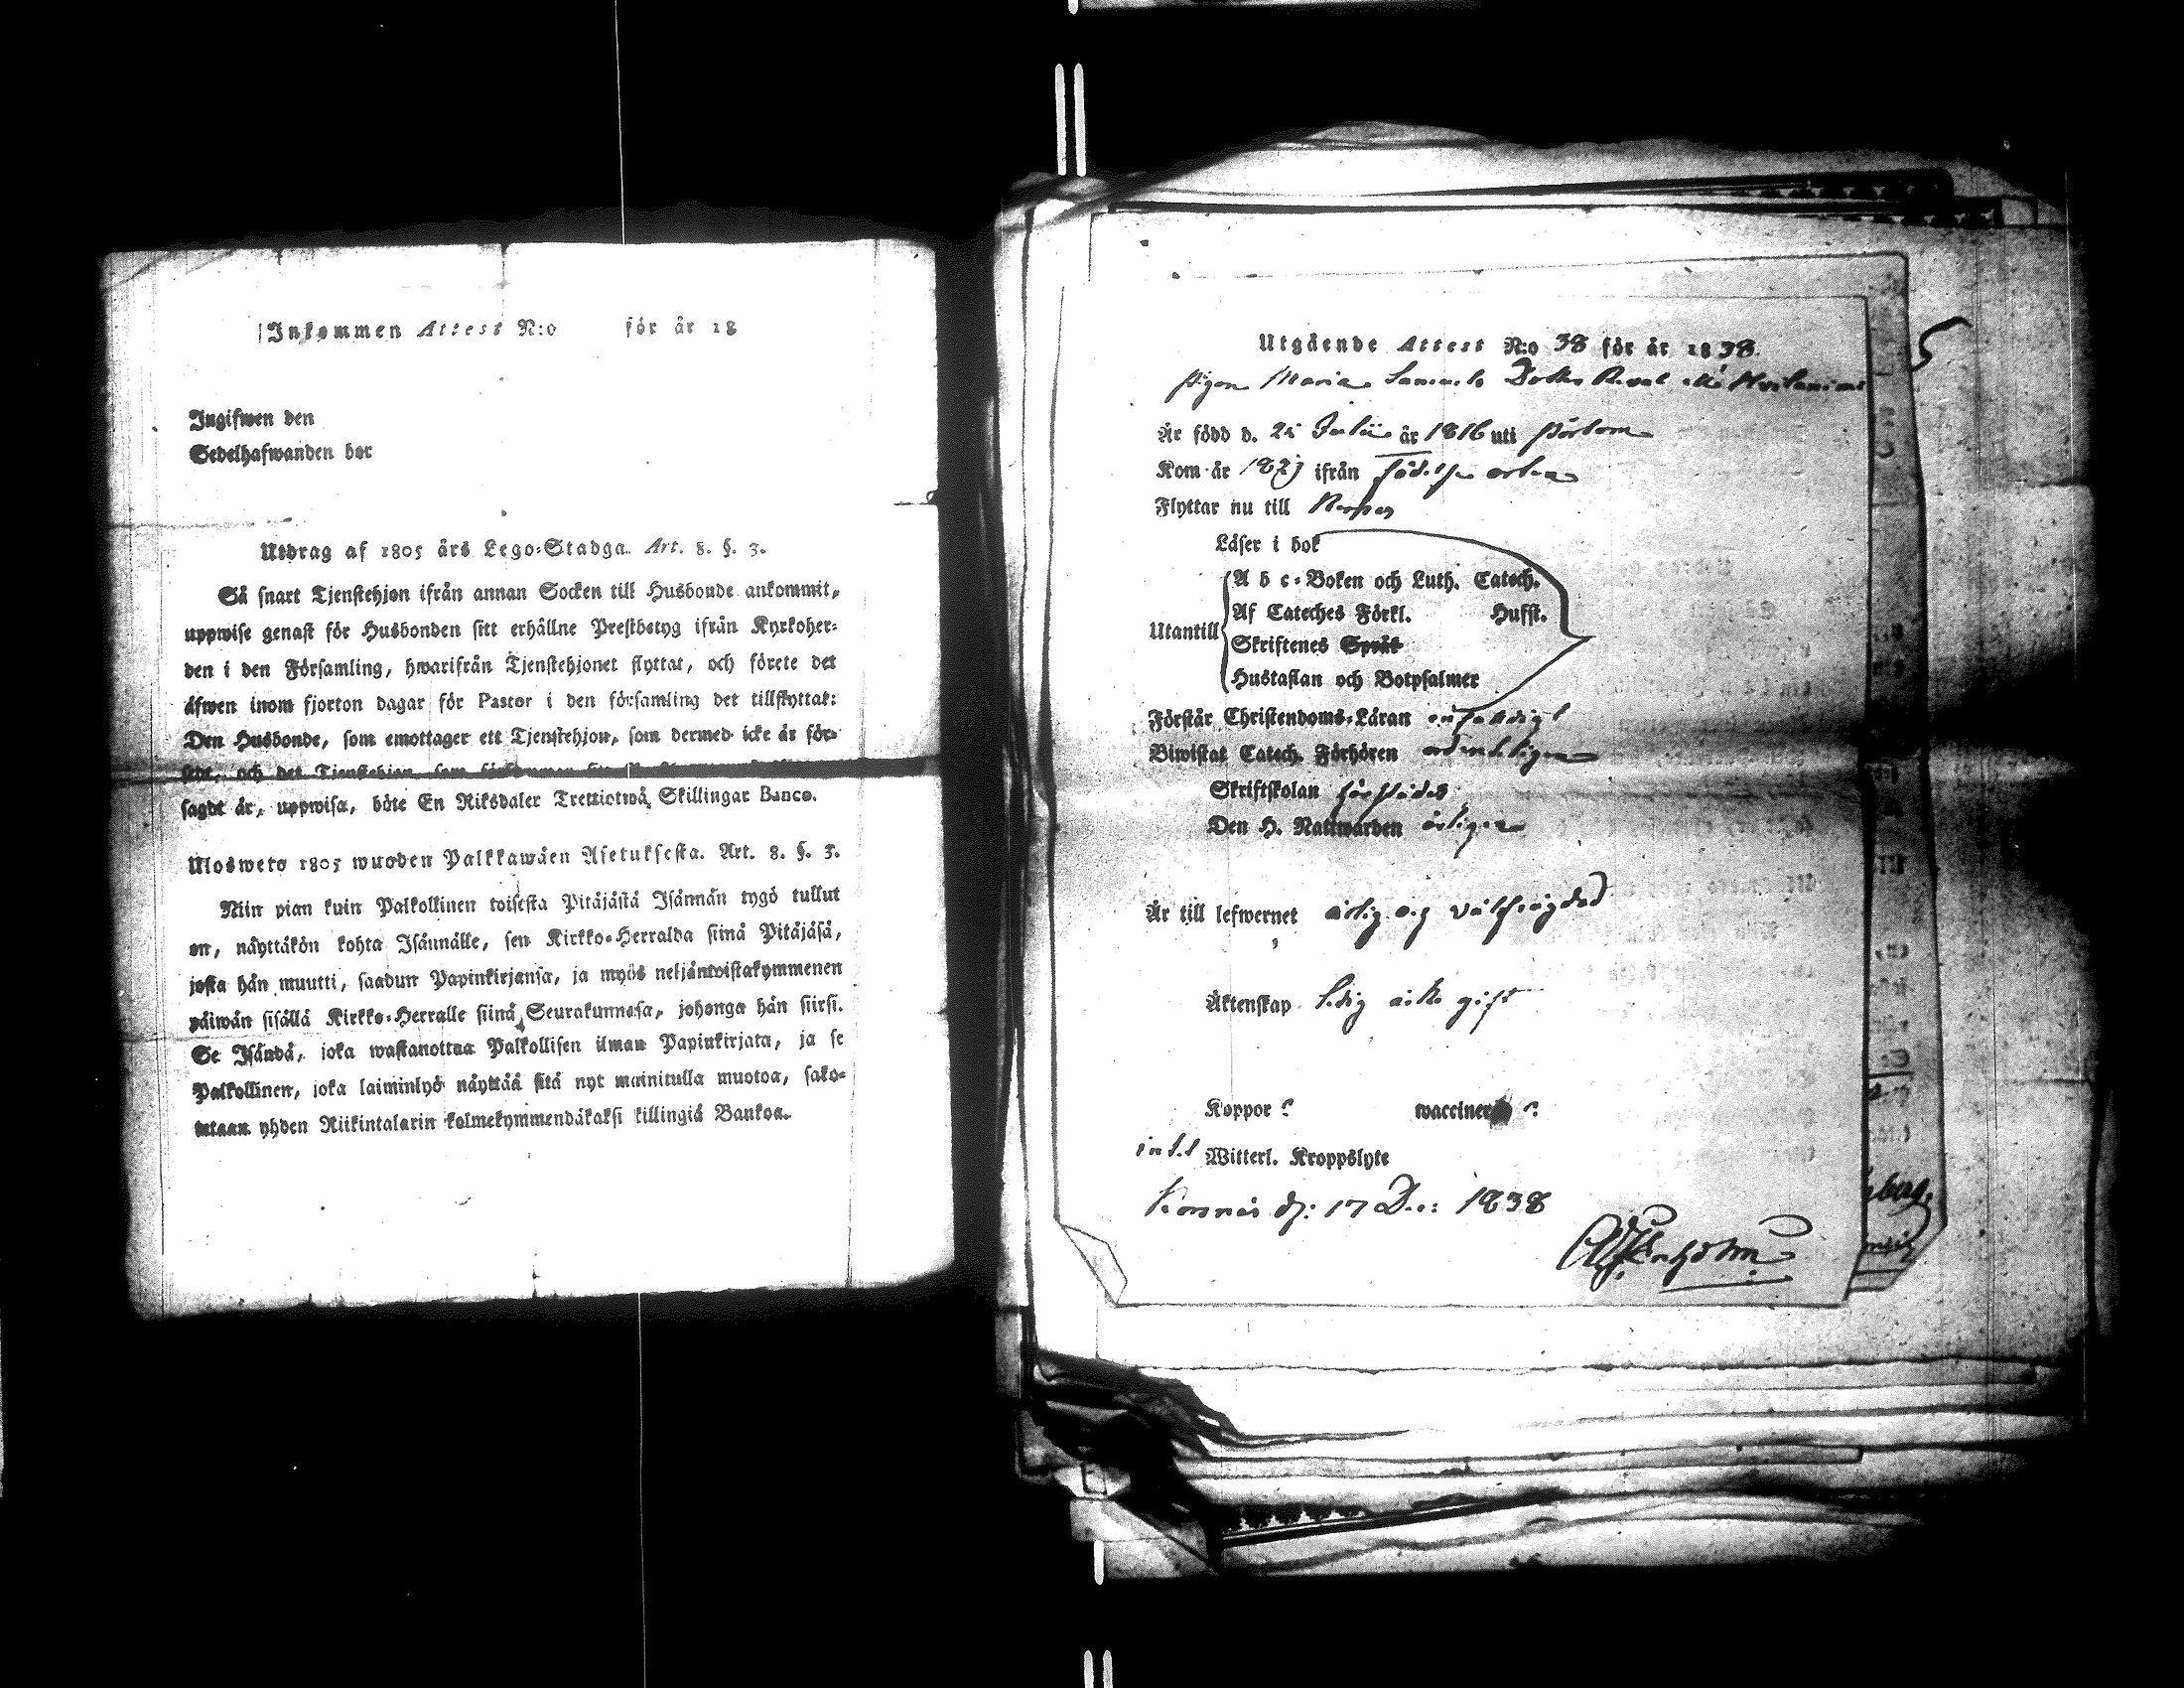 Inkommen Attest N:o för år 18
Ingifwen den
Sedelhafwanden bor
Utdrag af 1805 års Lego-Stadga. Art. 8. §. 3.
Så snart Tjenstehjon ifrån annan Socken till Husbonde ankommit,
uppwise genast för Husbonden sitt erhållne Prestbetyg ifrån Kyrkoher-
den i den Församling, hwarifrån Tjenstehjonet flyttat, och förete det
äfwen inom fjorton dagar för Pastor i den församling det tillflyttat:
Den Husbonde, som emottager ett Tjenstehjon, som dermed icke är för-
sedt, och det Tjenstehjon, som
sagdt är, uppwisa, böte En Riksdaler Trettiotwå Skillingar Banco.
Ulosweto 1805 wuoden Palkkawäen Asetuksesta. Art. 8. §. 3.
Niin pian kuin Palkollinen toisesta Pitäjästä Isännän tygö tullut
on, näyttäkön kohta Isännälle, sen Kirkko-Herralda siinä Pitäjäsä,
josta hän muutti, saadun Papinkirjansa, ja myös neljäntoistakymmenen
päiwän sisällä Kirkko-Herralle siinä Seurakunnasa, johonga hän siirsi.
Se Isändä, joka wastanottaa Palkollisen ilman Papinkirjata, ja se
Palkollinen, joka laiminlyö näyttää sitä nyt mainitulla muotoa, sako-
tetaan yhden Riikintalarin kolmekymmendäkaksi killingiä Bankoa.
Utgående Attest N:o 38 för år 1838.
Pigan Maria Samuels Dotter
5
Är född d. 25 Julii år 1816 uti Pörtom
Kom år 182 ifrån födelse orten
Flyttar nu till
Läser i bok
Utantill
A b c-Boken och Luth. Catech.
Af Cateches Förkl. Hufst.
Skriftenes Språk
Hustaflan och Botpsalmer
Förstår Christendoms-Läran enfaldigt
Biwistat Catech. Förhören ordenteligen
Skriftskolan
Den H. Nattwarden årligen
Är till lefwernet ärlig och välfrägdad
Äktenskap ledig att gift
Koppor ? waccinerad ?
intet Witterl. Kroppslyte
Korsnäs d: 17 Dec: 1838